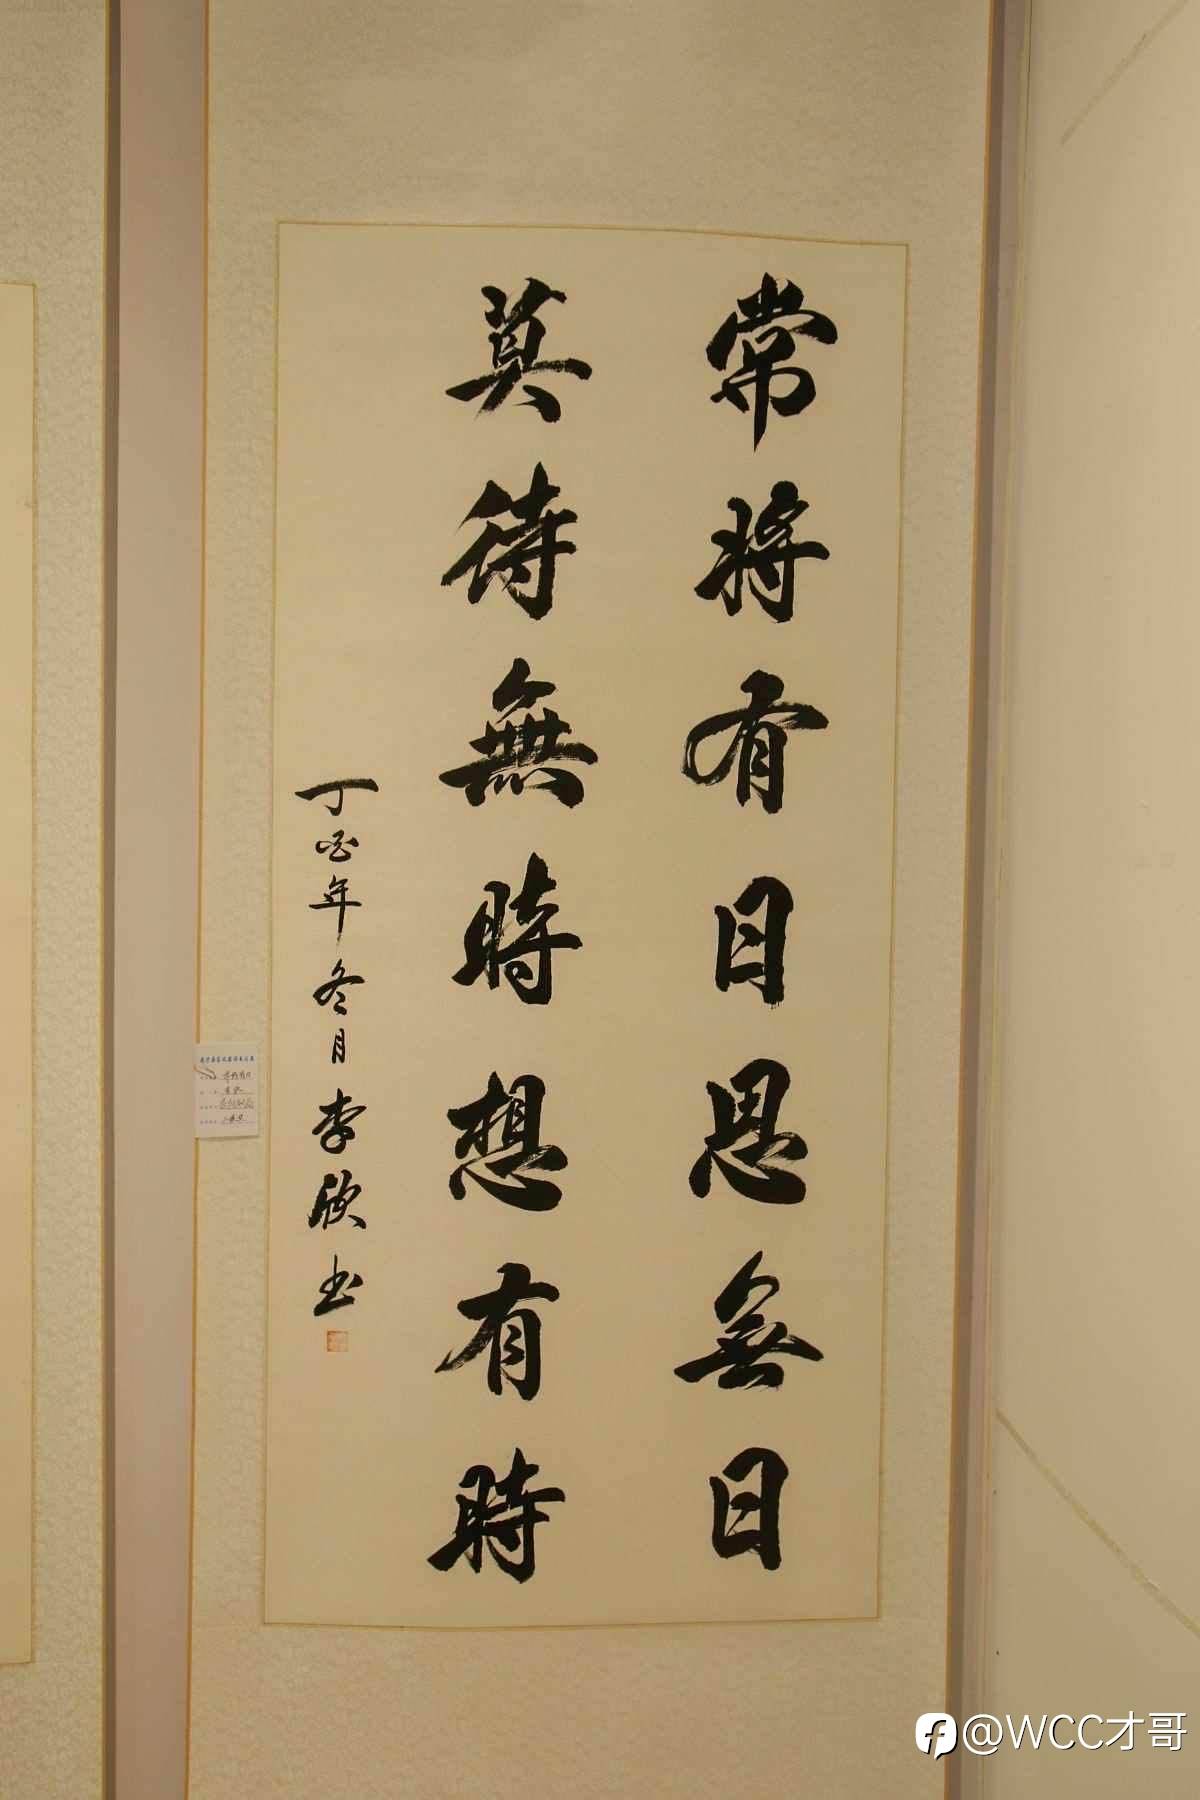 常將有日思無日
莫待無時想有時
丁酉年冬月李欣书
@WCC才哥